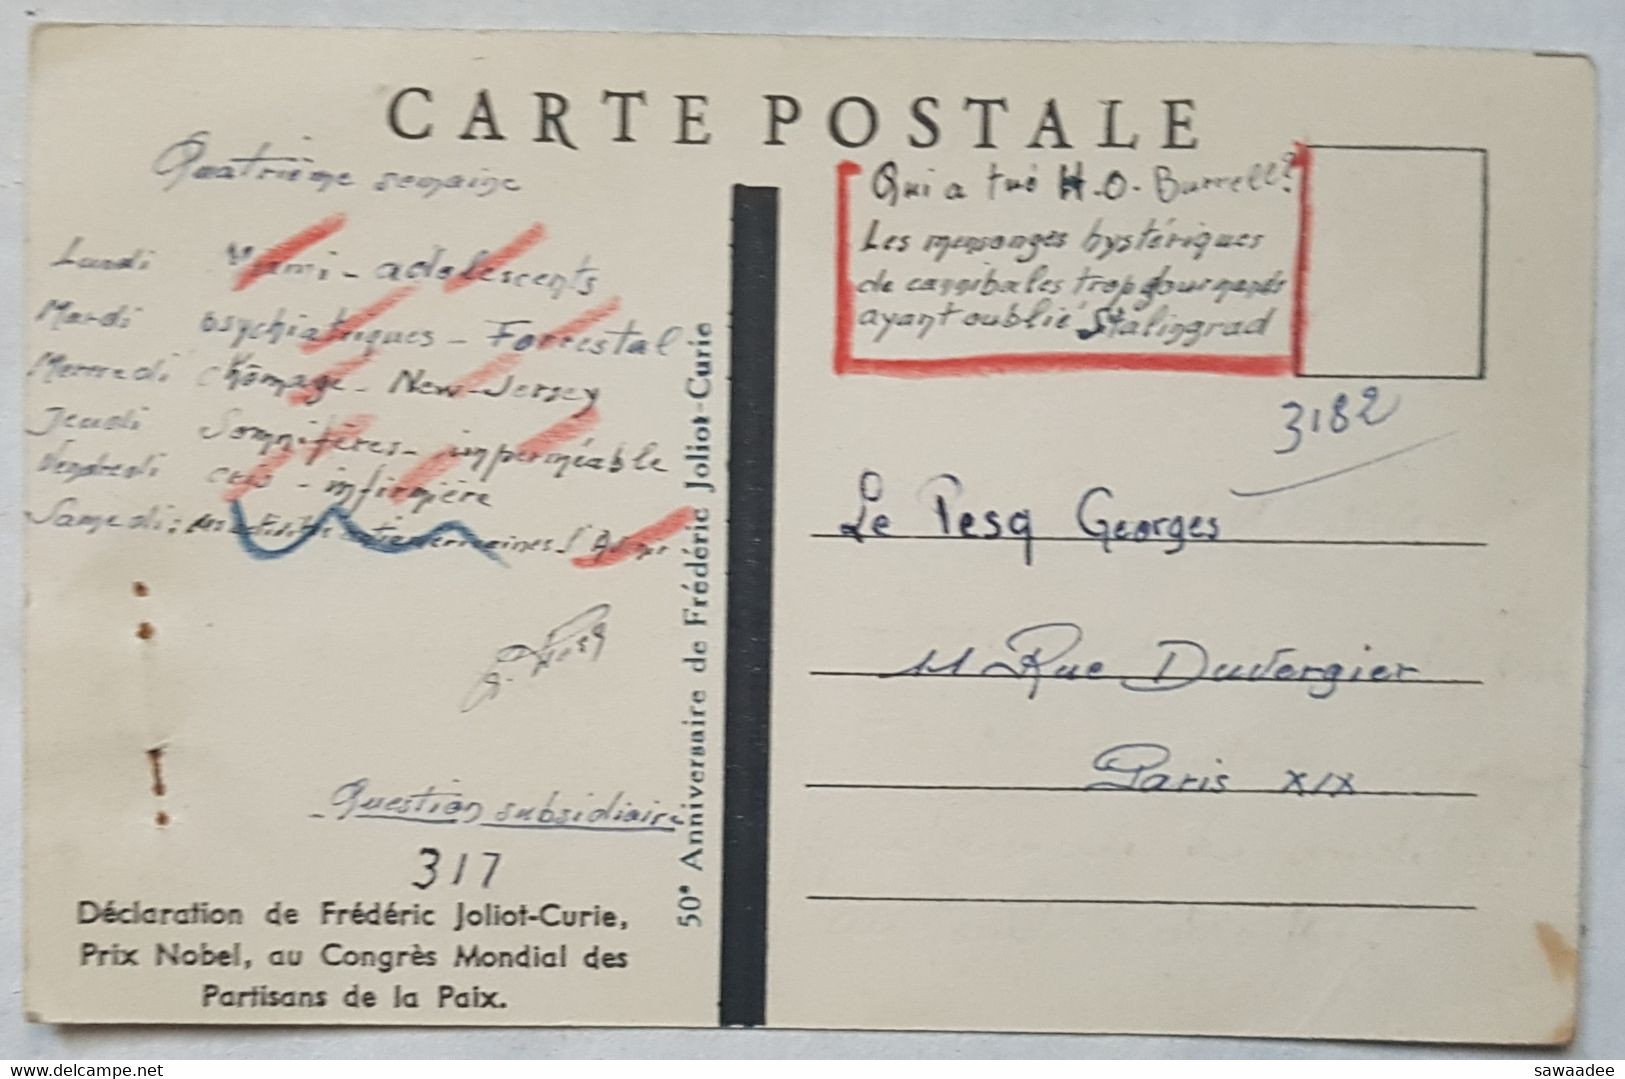 CARTE POSTALE
Quatrième semaine
Lundi Miami - adolescents
Mardi psychiatriques - Forrestal
Mercredi chômage - New-Jersey
Jeudi Somnifères - imperméable
Vendredi - infirmière
Samedi :
Question subsidiaire
317
Déclaration de Frédéric Joliot-Curie,
Prix Nobel, au Congrès Mondial des
Partisans de la Paix.
50e Anniversaire de Frédéric Joliot-Curie
Qui a tué H.O. Burrell?
Les mensonges hystériques
de cannibales trop gourmands
ayant oublié Stalingrad
3182
Le Pesq Georges
11 Rue Duvergier
Paris XIX
delcampe.net
sawaadee